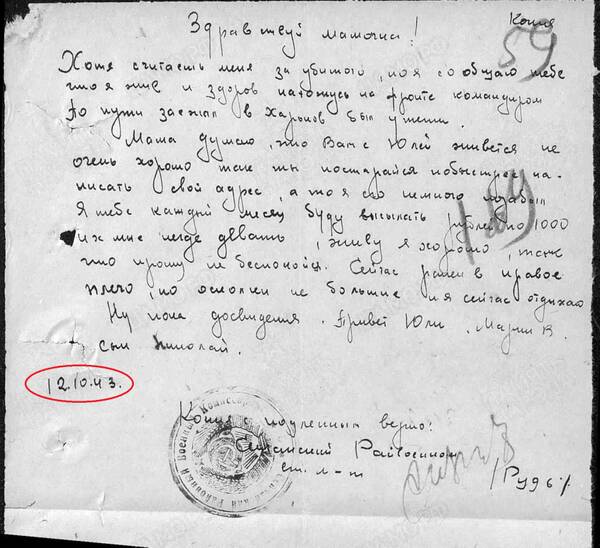 Копия
59
Здравствуй мамочка!
Хотя считаешь меня за убитого, но я сообщаю тебе
что я жив и здоров нахожусь на фронте командиром
По пути заезжал в Харьков был у тети.
Мама думаю, что Вам с Юлей живется не
очень хорошо так ты постарайся побыстрее на-
писать свой адрес, а то я его немного забыл
Я тебе каждый месяц буду высылать рублей по 1000
их мне негде девать, живу я хорошо, так
что прошу не беспокойся. Сейчас ранен в правое
плечо, но осколки не большие и я сейчас отдыхаю
Ну пока досвидения. Привет Юли, Марии В.
сын Николай.
12.10.43.
Копия с подлинным верно:
Райвоенком
ст. л-т /Рудь/